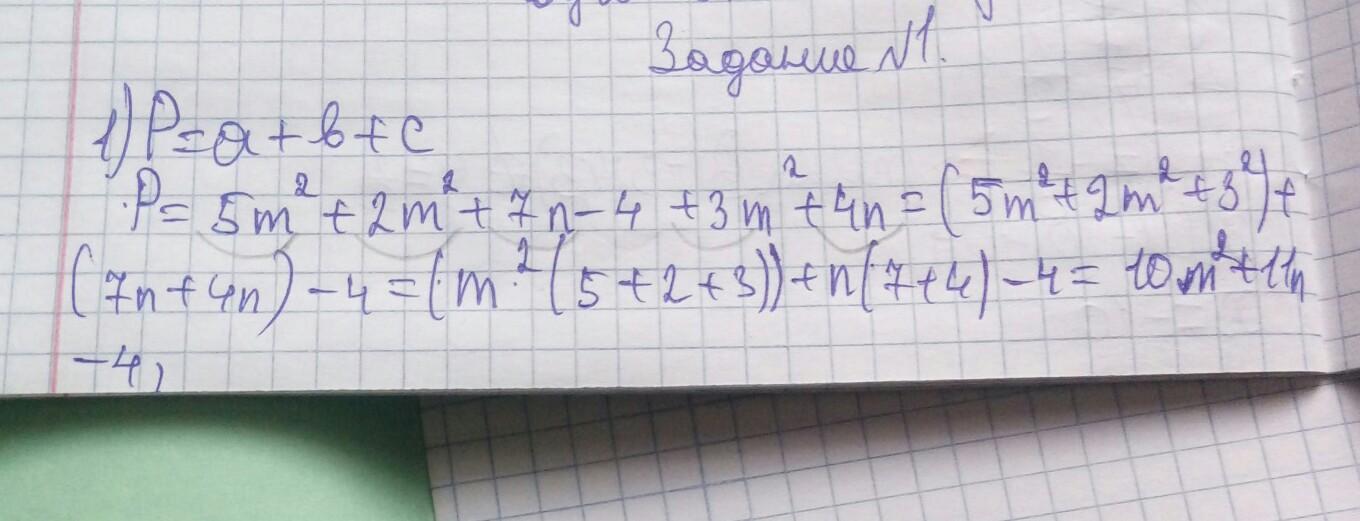 Задание №1.
1) P=a+b+c
P= 5m²+2m²+7n-4+3m²+4n=(5m²+2m²+3²)+
(7n+4n)-4=(m²(5+2+3))+n(7+4)-4= 10m²+11n
-4,